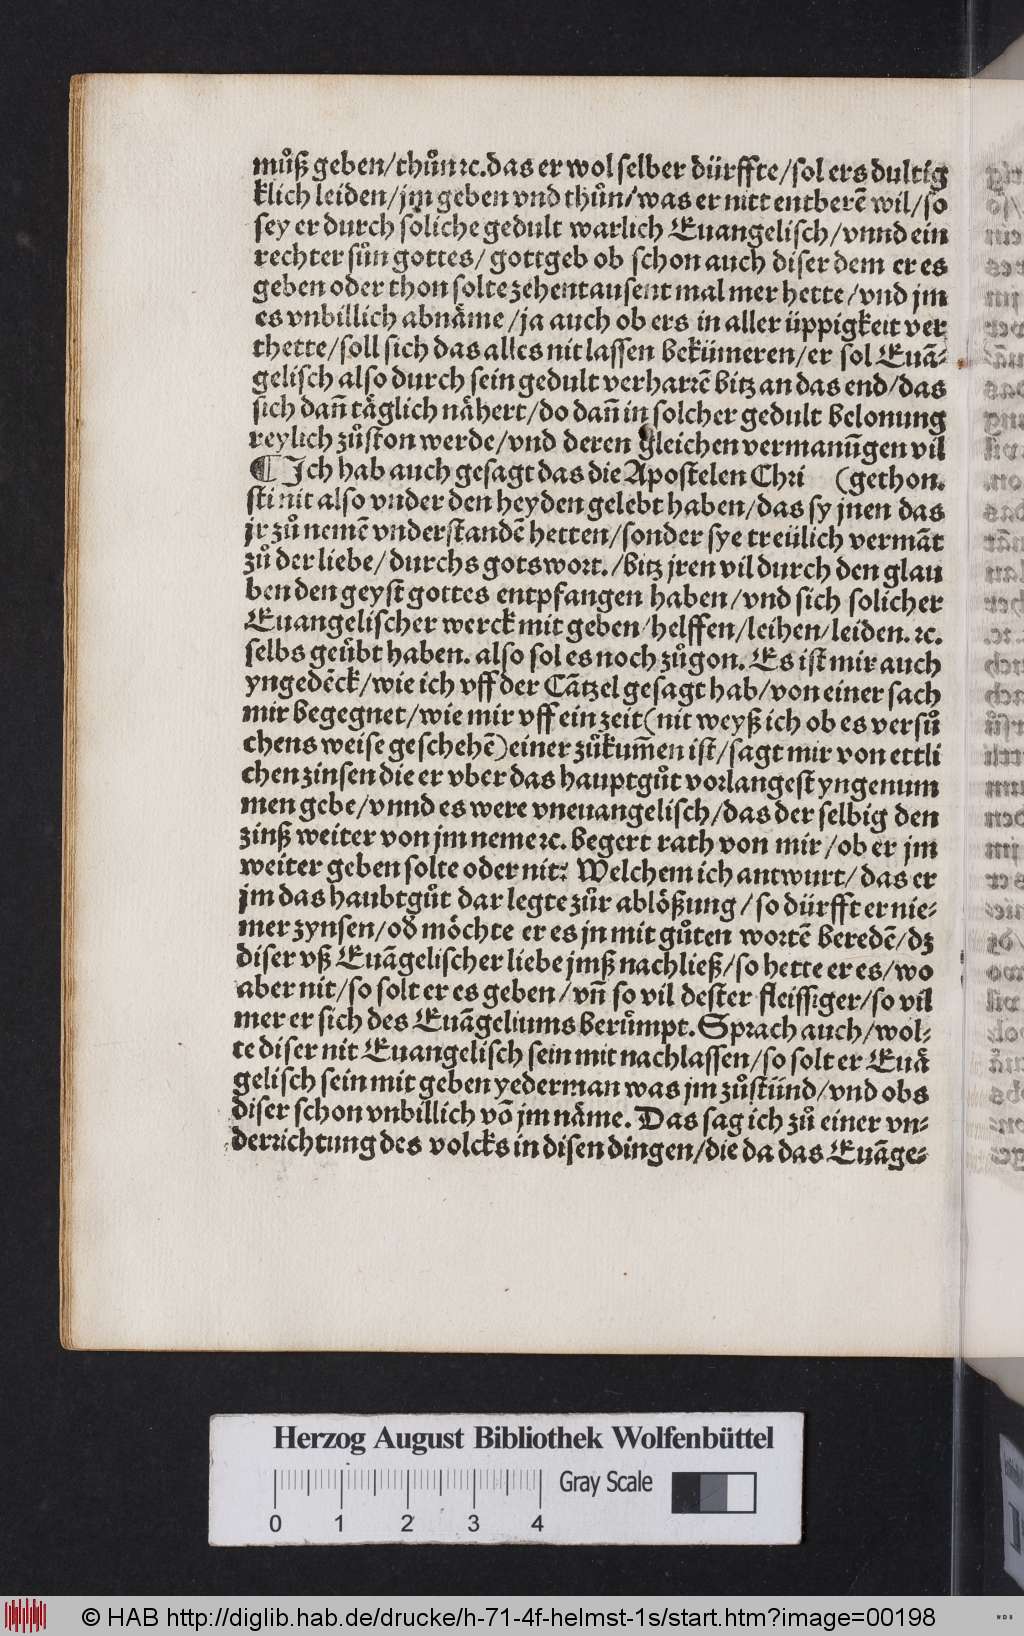 muͦß geben/thuͦn ꝛc. das er wol selber dürffte/sol ers dultig
klich leiden/jm geben vnd thuͦn/was er nitt entberē wil/so
sey er durch soͤliche gedult warlich Euangelisch/vnnd ein
rechter suͦn gottes/ gottgeb ob schon auch diser dem er es
geben oder thon solte zehentausent mal mer hette/vnd jm
es vnbillich abnaͤme/ja auch ob ers in aller üppigkeit ver
thette/soll sich das alles nit lassen bekümeren/er sol Euā-
gelisch also durch sein gedult verharrē bitz an das end/das
sich dañ taͤglich naͤhert/do dañ in solcher gedult belonung
reylich zuͦston werde/vnd deren gleichen vermanūgen vil
¶ Ich hab auch gesagt das die Apostelen Chri (gethon.
sti nit also vnder den heyden gelebt haben/das sy jnen das
jr zuͦ nemē vnderstandē hetten/sonder sye treülich vermāt
zuͦ der liebe/ durchs gotswort./bitz jren vil durch den glau
ben den geyst gottes entpfangen haben/vnd sich solicher
Euangelischer werck mit geben/helffen/leihen/leiden. ꝛc.
selbs geuͤbt haben. also sol es noch zuͦgon. Es ist mir auch
yngedēck/wie ich vff der Cātzel gesagt hab/von einer sach
mir begegnet/wie mir vff ein zeit(nit weyß ich ob es versuͦ
chens weise geschehē)einer zuͦkum̄en ist/sagt mir von ettli
chen zinsen die er vber das hauptguͦt vorlangest yngenum
men gebe/vnnd es were vneuangelisch/das der selbig den
zinß weiter von jm neme ꝛc. begert rath von mir/ob er jm
weiter geben solte oder nit: Welchem ich antwurt/ das er
jm das haubtguͦt dar legte zuͦr abloͤßung/so dürfft er nie-
mer zynsen/od moͤchte er es jn mit guͦten wortē beredē/dz
diser vß Euāgelischer liebe jmß nachließ/so hette er es/wo
aber nit/so solt er es geben/vñ so vil dester fleissiger/so vil
mer er sich des Euāgeliums beruͤmpt. Sprach auch/wol-
te diser nit Euangelisch sein mit nachlassen/so solt er Euā
gelisch sein mit geben yederman was jm zuͦstünd/vnd obs
diser schon vnbillich vō jm naͤme. Das sag ich zuͦ einer vn-
derrichtung des volcks in disen dingen/die da das Euāge-
Herzog August Bibliothek Wolfenbüttel
Gray Scale
0 1 2 3 4
© HAB http://diglib.hab.de/drucke/h-71-4f-helmst-1s/start.htm?image=00198